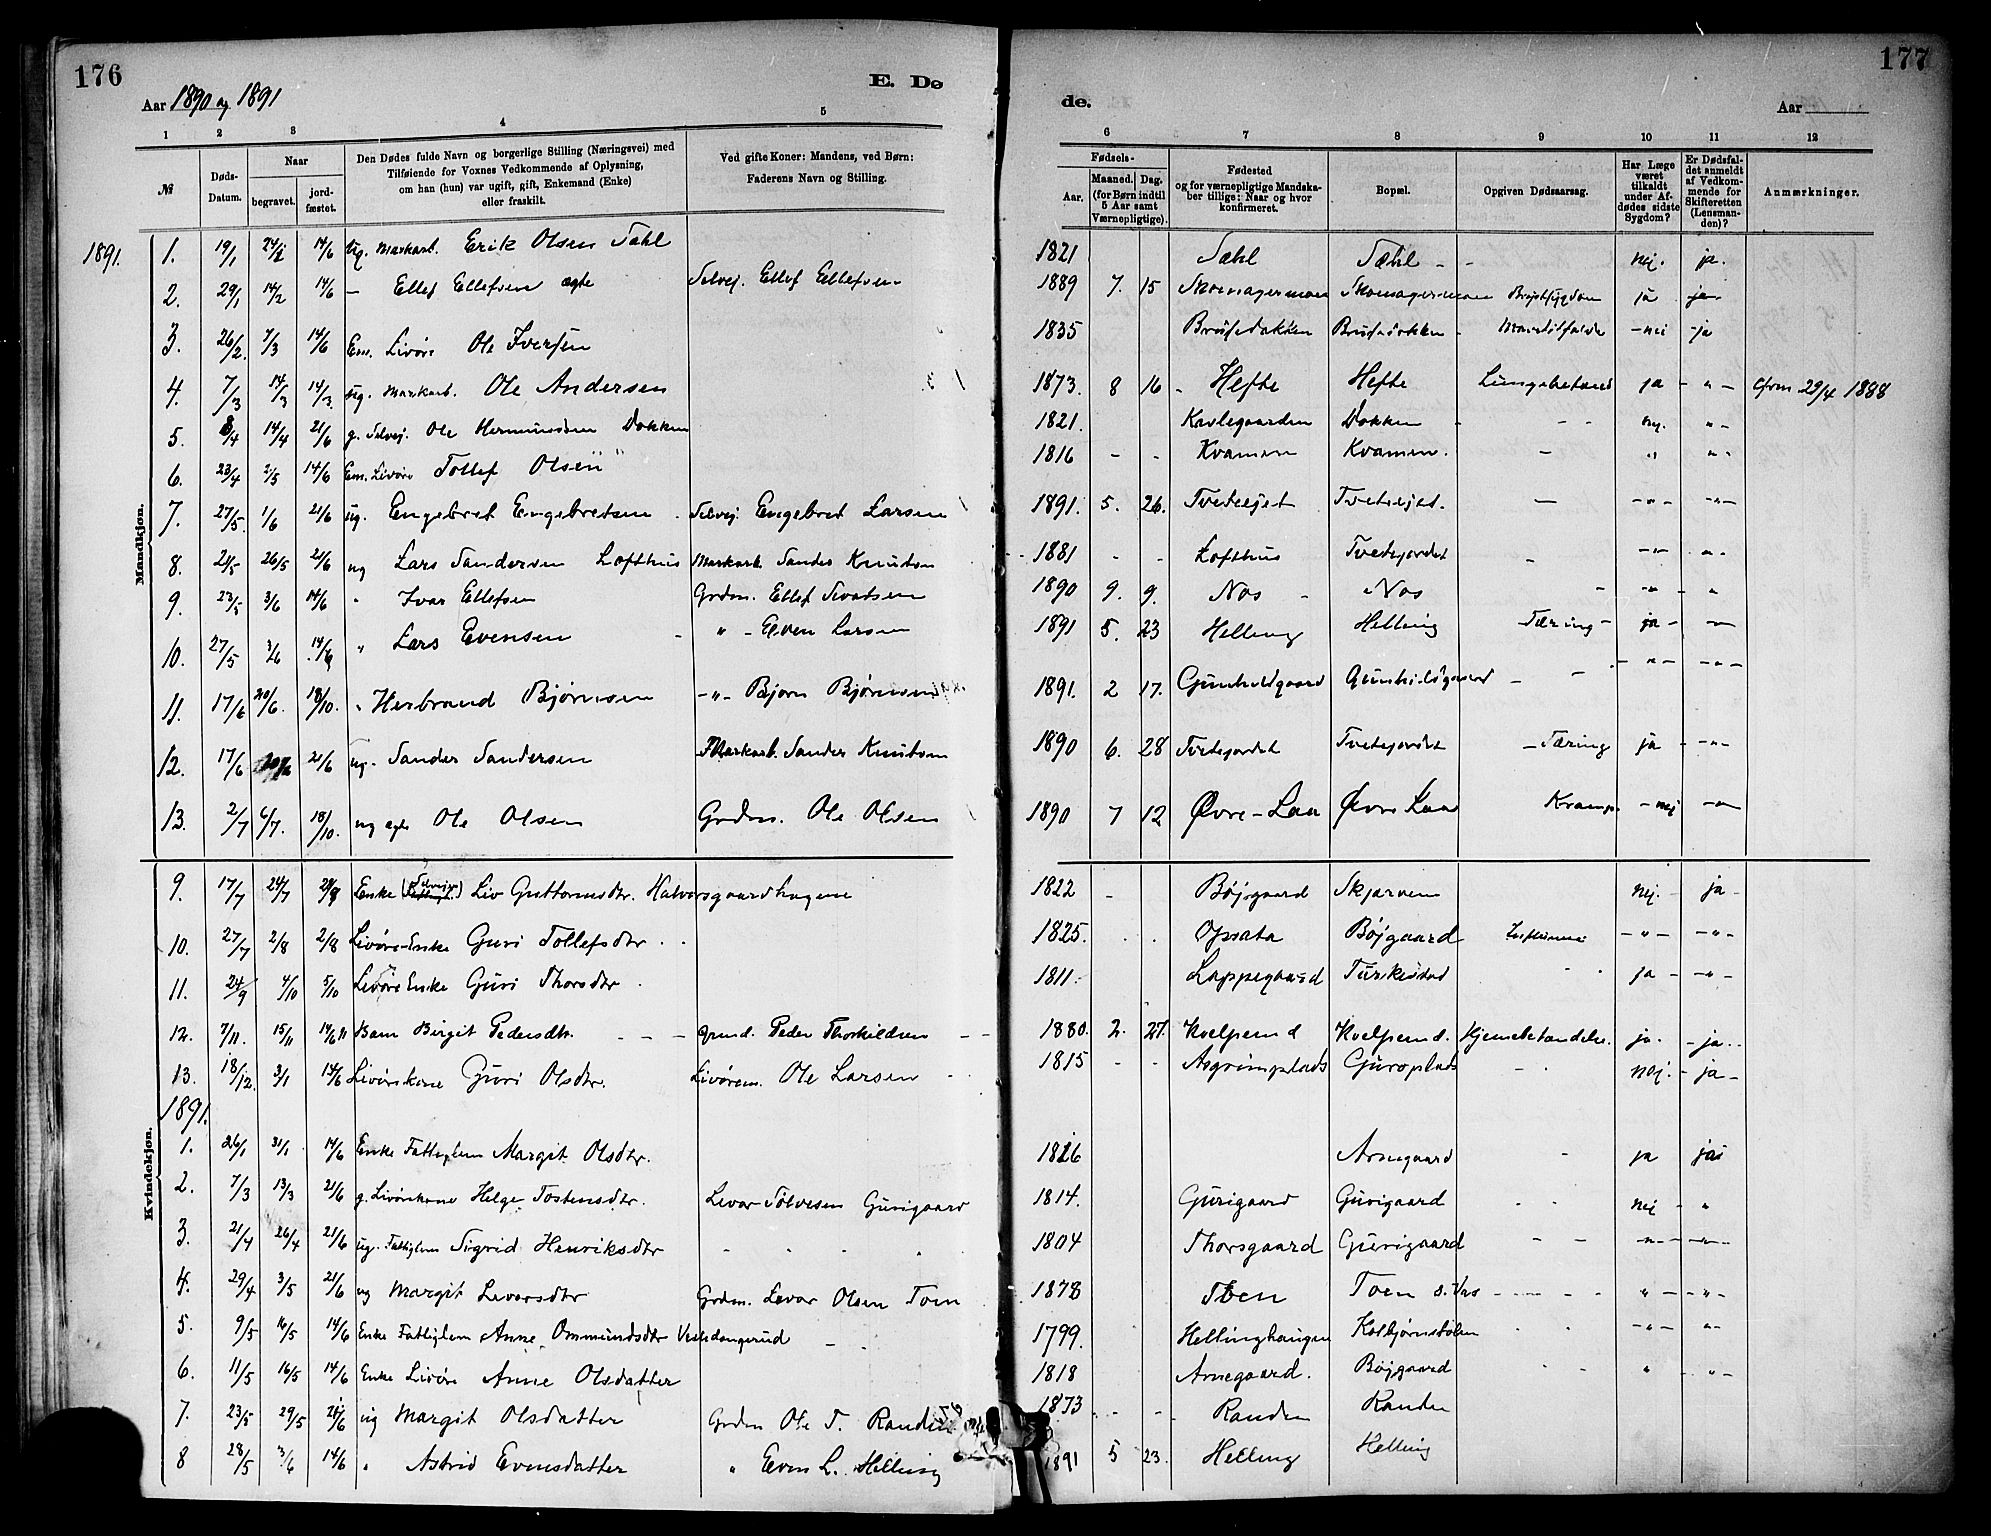 176
E. Dø
de.
177
Aar 1890 og 1891
Aar
1 2 3 4 5 6 7 8 9 10 11 12
№ | Døds-Datum. | Naar begravet. | jord-fæstet. | Den Dødes fulde Navn og borgerlige Stilling (Næringsvei) med Tilføiende for Voxnes Vedkommende af Oplysning, om han (hun) var ugift, gift, Enkemand (Enke) eller fraskilt. | Ved gifte Koner: Mandens, ved Børn: Faderens Navn og Stilling. | Fødsels- Aar. | Maaned. Dag. (for Børn indtil 5 Aar samt Værnepligtige). | Fødested og for værnepligtige Mandskaber tillige: Naar og hvor konfirmeret. | Bopæl. | Opgiven Dødsaarsag. | Har Læge været tilkaldt under Afdødes sidste Sygdom? | Er Dødsfaldet anmeldt af Vedkommende for Skifteretten (Lensmanden)? | Anmærkninger.
Mandkjøn.
1891. 1. 19/1 24/2 14/6 ug. Markarb. Erik Olsen Sæhl 1821 Sæhl Sæhl - - nej. ja.
2. 29/1 14/2 14/6 - Ellef Ellefsen ægte Selvej. Ellef Ellefsen 1889 7. 15 Skomagermoen Skomagermoen Brystsygdom ja ja
3. 26/2. 7/3 14/6 Em. Livøre Ole Iversen 1835 Brusedokken Brusedokken - - nei - ja
4. 7/3 14/3 14/3. ug. Markarb. Ole Andersen 1873. 8 16 - Hefte Hefte Lungebetænd ja - " - Cfrm 29/4 1888
5. 8/4 14/4 21/6 g. Selvej. Ole Hermundsen Dokken 1821. Kavlegaarden Dokken - - - nej. " -
6. 23/4 2/5 14/6 Em. Livøre Tollef Olsen " 1816 - - Kvamen Kvamen. - " " -
7. 27/5. 1/6 21/6 ug. Engebret Engebretsen. Selvej. Engebret Larsen 1891. 5. 26. Tveteiejet Tveteiejet. - - " - - " -
8. 21/5 26/5 21/6 ug Lars Sandersen Lofthus Markarb. Sander Knutsen 1881 - - Lofthus Tvetejordet - - " - "
9. 23/5 3/6 14/6 " Ivar Ellefsen Grdm. Ellef Sevatsen 1890 9. 9. Nos - Nos - - " - "
10. 27/5 3/6 14/6 " Lars Evensen " - Even Larsen 1891 5. 23 Helling Helling Tæring - ja - - " -
11. 17/6 20/6. 18/10. " Herbrand Bjørnsen - " - Bjørn Bjørnsen 1891. 2 17. Gunhildgaard Gunhildgaard - - - " - - " -
12. 17/6 20/6 21/6 ug. Sander Sandersen Markarb. Sander Knutsen 1890 6. 28 Tvetejordet Tvetejordet - Tæring ja - - " -
13. 2/7 6/7. 18/10. ug ægte Ole Olsen Grdm. Ole Olsen 1890 7 12 Øvre-Laa Øvre Laa Krampe. - nej - " -
Kvindekjøn.
9. 17/7 24/7 Enke (Selvejer) Liv Guttormsdtr. Halvorsgaardhagene 1822 - Bøjgaard Skjærvem nej. - ja -
10. 27/7 2/8 2/8 Livøre-Enke Guri Tollefsdtr. 1825. Opsata Bøjgaard - " - - " -
11. 24/9 4/10 5/10 Livøre Enke Guri Thorsdtr 1811. Lappegaard ja - - " -
12. 7/11. 15/11 14/6 91 Barn Birgit Pedersdtr. - - - Grmd. Peder Thorkildsen - - 1880. 2. 27. Kvelpemd Kvelpemd. Hjernebetændelse. ja. - ja. .
13. 18/12. 3/1 14/6 Livørskone Guri Olsdtr. Livørem. Ole Larsen 1815 - - Asgrimplads Guroplads - nej. - ja -
1891.
1. 26/1 31/1 14/6 Enke Fattiglem Margit Olsdtr. 1826 Arnegaard - ja jai
2. 7/3 13/3 21/6 g. Livørskone Helge Tostensdtr. Levor Tolvesen Gurigaard 1814. Gurigaard Gurigaard - - nej - "
3. 21/4 26/4 21/6 ug. Fattiglem Sigrid Henriksdtr 1804 Thorsgaard Gurigaard - - - " - - " -
4. 29/4 3/5 21/6 ug Margit Levorsdtr Grdm. Levor Olsen Toen 1878 Toen Toen s. Aas - - - - " - - " -
5. 9/5 16/5 14/6 Enke Fattiglem Anne Ommundsdtr 1799. Hellinghaugen Kolbjørnstølen - " - " -
6. 11/5 16/5 14/6 Enke Livøre Anne Olsdatter 1818 Arnegaard. Bøjgaard - - " " -
7. 23/5 29/5 21/6 ug Margit Olsdatter Grdm Ole T. Randen 1873 - - Randen Randen
8 28/5 3/6 14/6 " Astrid Evensdatter " Even L. Helling 1891 5 23. Helling Helling